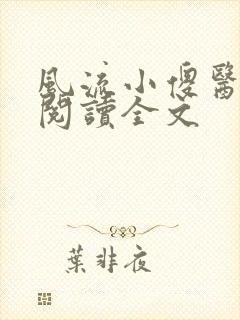 風流小傻醫
閱讀全文
葉非夜